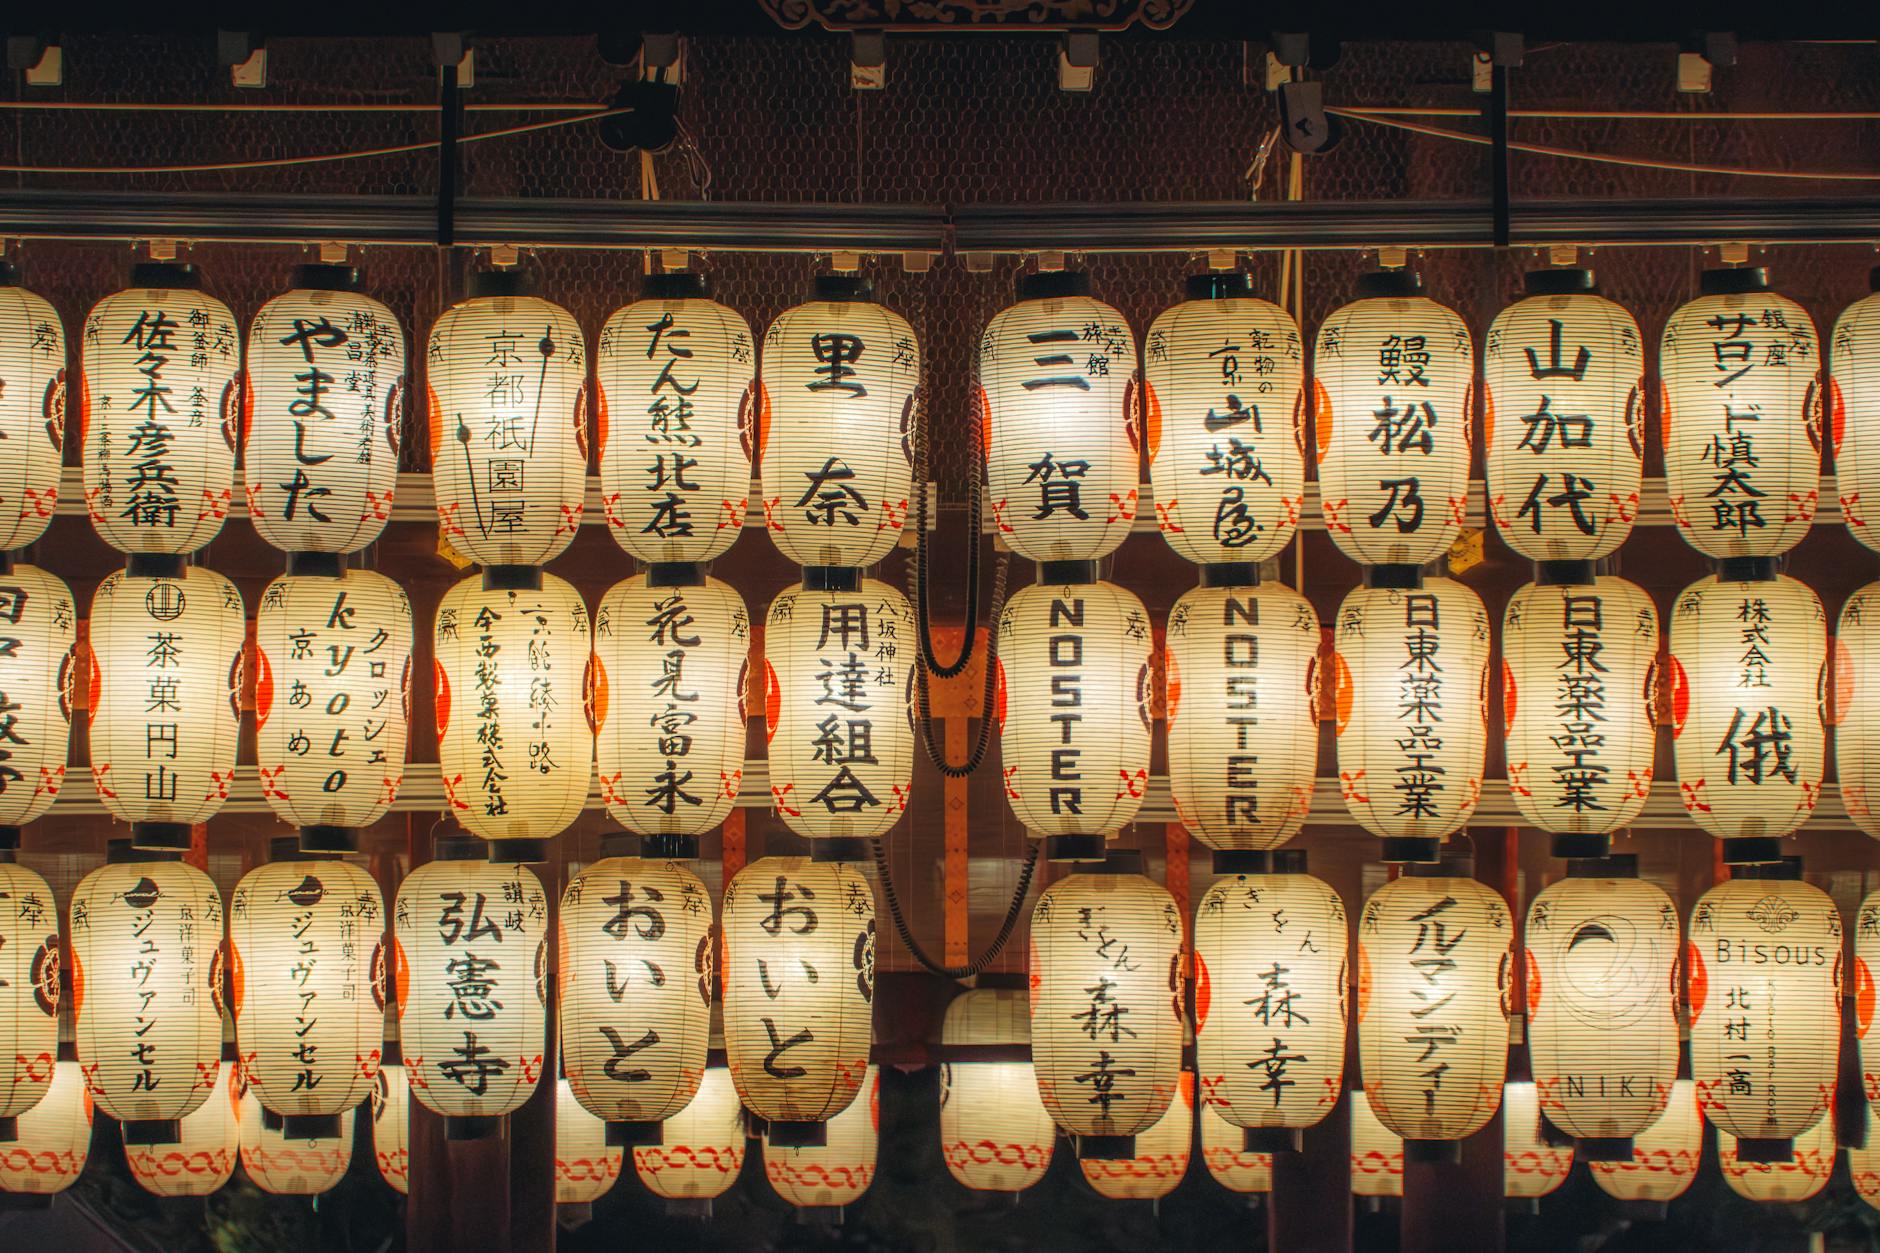 御釜師・釜彦
佐々木彦兵衛
清昌堂
やました
京都祇園屋
たん熊北店
里奈
旅館
三賀
乾物の
京山城屋
鰻松乃
山加代
銀座
サロン・ド慎太郎
茶菓円山
クロッシェ
kyoto
京あめ
京能綾小路
今西製菓株式会社
花見富永
八坂神社
用達組合
NOSTER
NOSTER
日東薬品工業
日東薬品工業
株式会社
俄
京洋菓子司
ジュヴァンセル
京洋菓子司
ジュヴァンセル
讃岐
弘憲寺
おいと
おいと
ぎをん
森幸
ぎをん
森幸
イルマンディー
NIKI
Bisous
北村一高